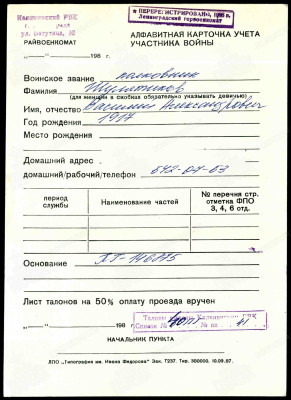 Калининский РВК
ул. Ватутина, 10
РАЙВОЕНКОМАТ
"___" ________ 198 г.
* ПЕРЕРЕГИСТРИРОВАНО, 198 г.
Ленинградский горвоенкомат
АЛФАВИТНАЯ КАРТОЧКА УЧЕТА
УЧАСТНИКА ВОЙНЫ
Воинское звание полковник
Фамилия
(для женщин в скобках обязательно указывать девичью)
Имя, отчество Василий Александрович
Год рождения 1917
Место рождения
Домашний адрес
домашний/рабочий/телефон 542-07-63
период службы
Наименование частей
№ перечня стр. отметка ФПО 3, 4, 6 отд.
Основание ХГ-146875
Лист талонов на 50% оплату проезда вручен
"___" ________ 198 г.
Талоны Калининск. РВК
Список № на 41
НАЧАЛЬНИК ПУНКТА
ЛПО „Типография им. Ивана Федорова" Зак. Т237. Тир. 300000. 10.09.87.